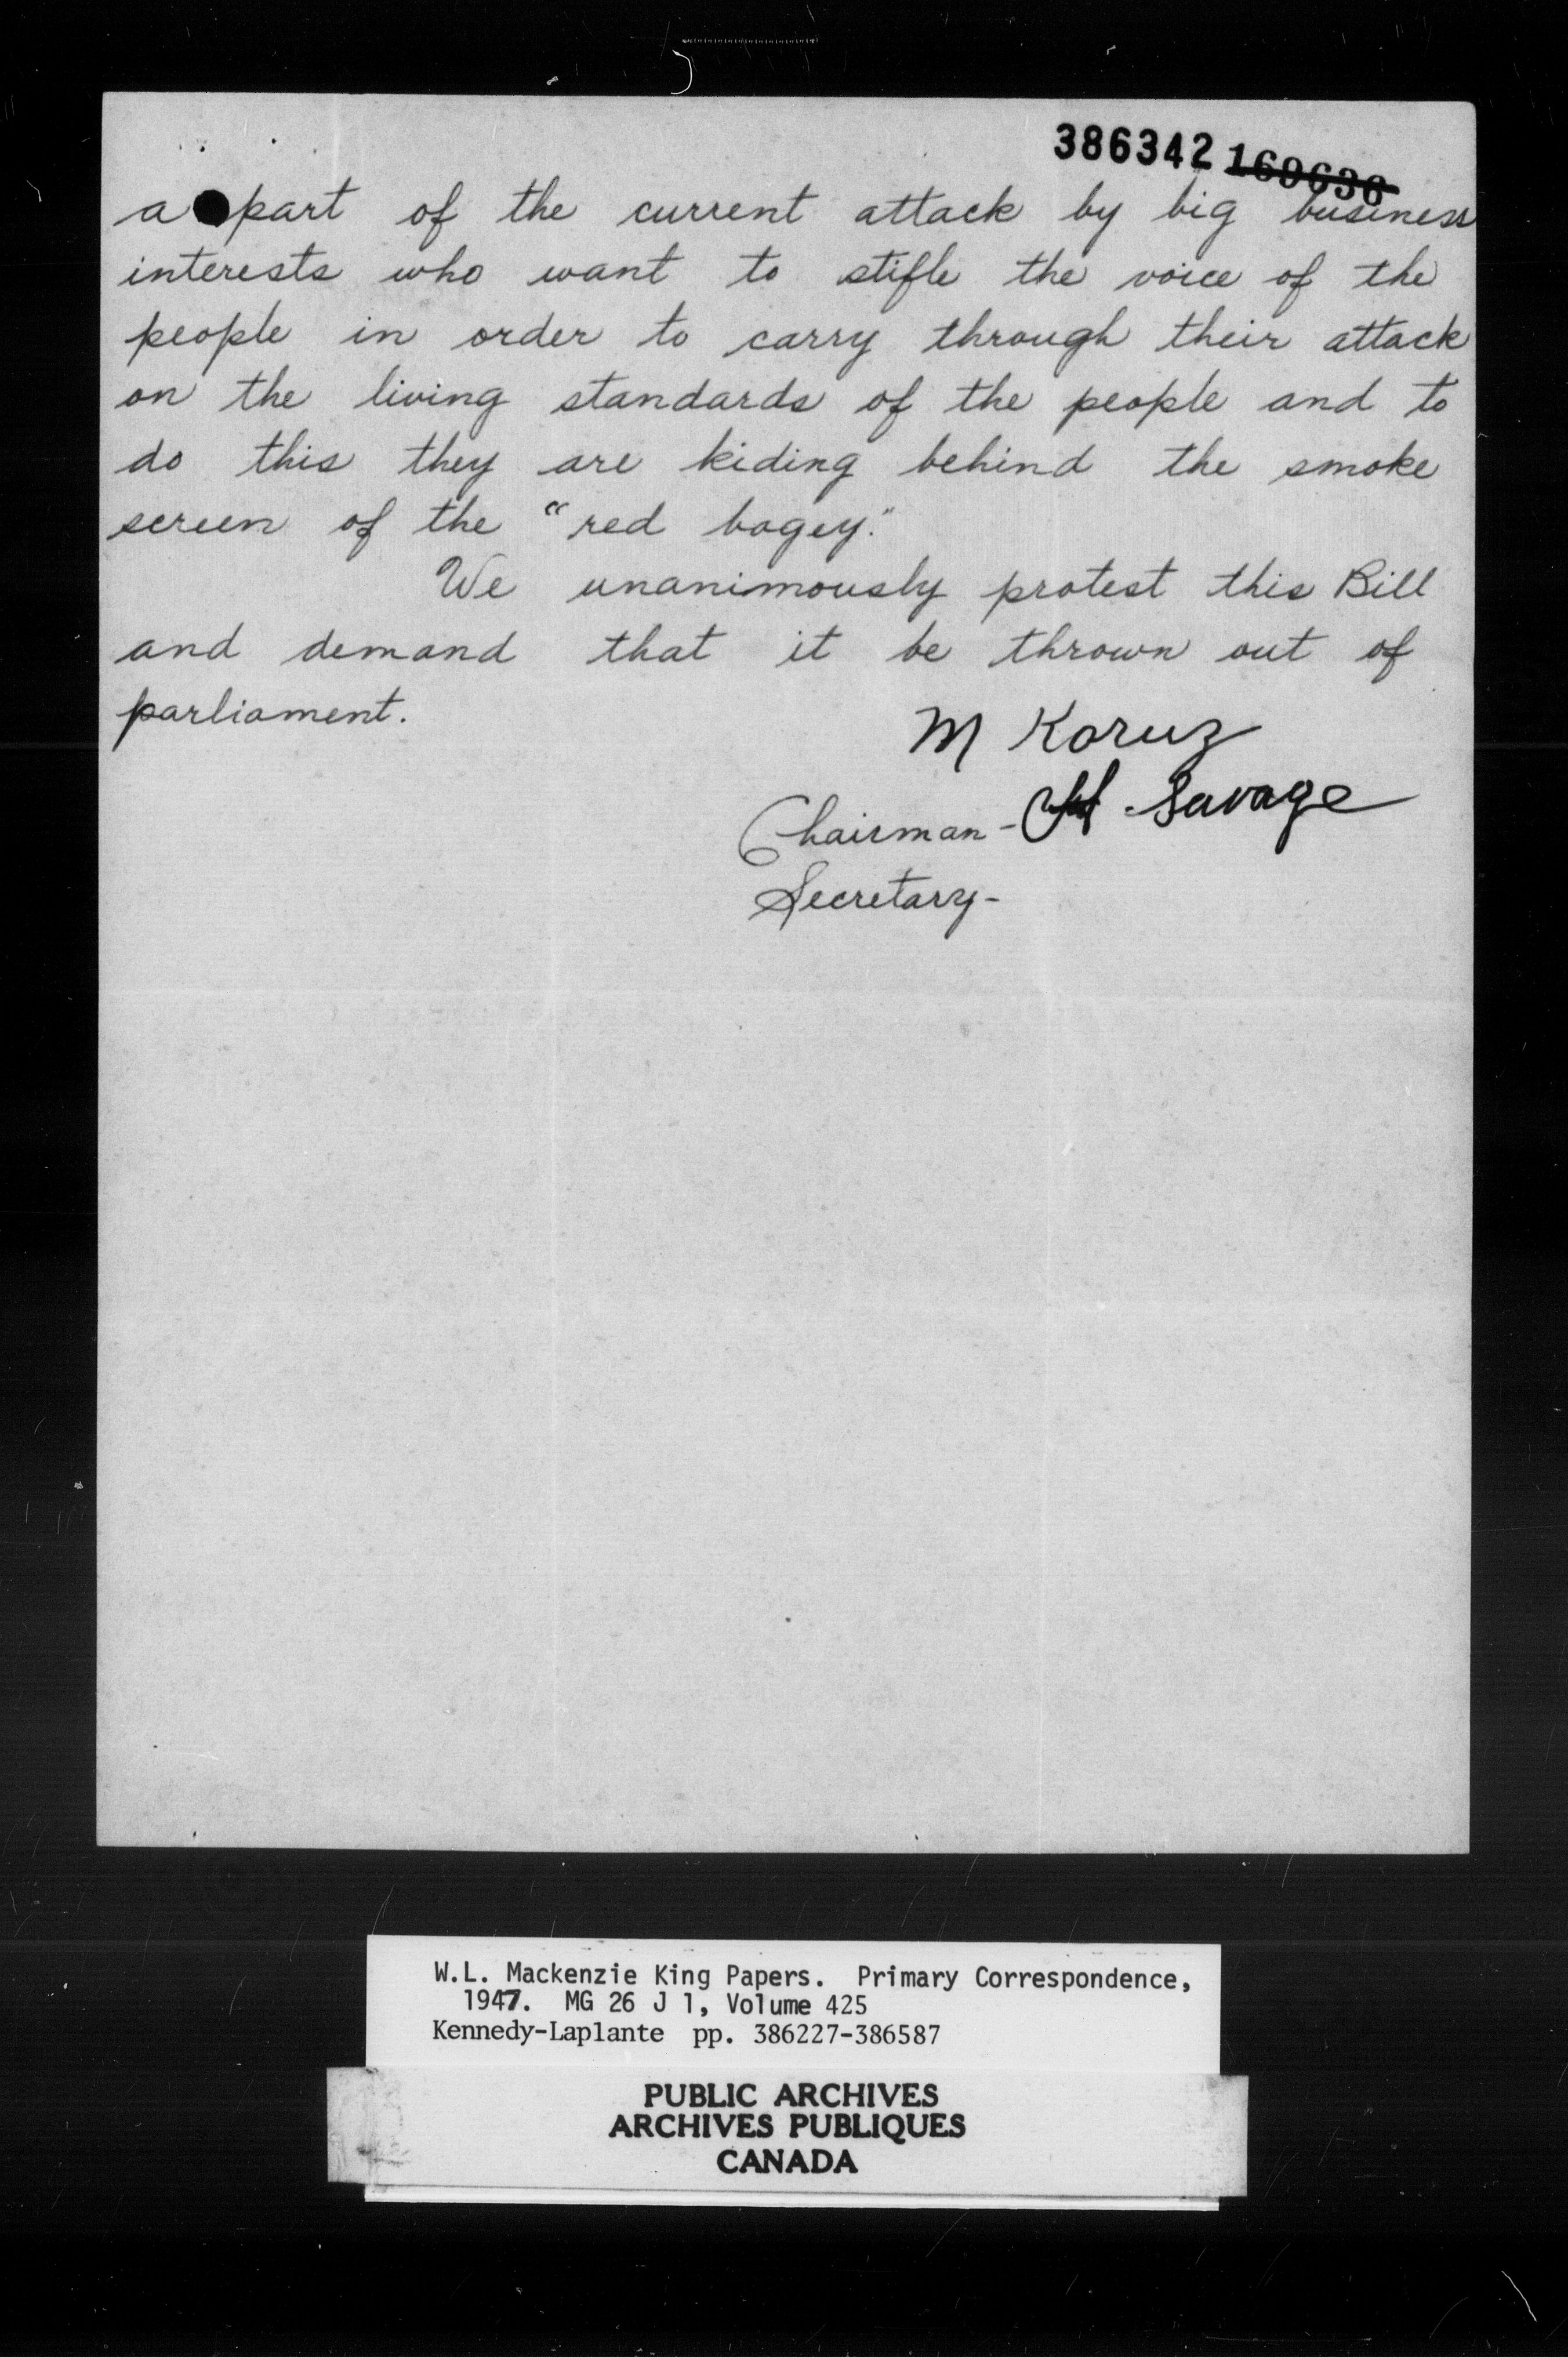 386342 169636
a part of the current attack by big business
interests who want to stifle the voice of the
people in order to carry through their attack
on the living standards of the people and to
do this they are hiding behind the smoke
screen of the "red bogey."
We unanimously protest this Bill
and demand that it be thrown out of
parliament.
M Koruz
Chairman - Savage
Secretary -
W.L. Mackenzie King Papers. Primary Correspondence,
1947. MG 26 J 1, Volume 425
Kennedy-Laplante pp. 386227-386587
PUBLIC ARCHIVES
ARCHIVES PUBLIQUES
CANADA